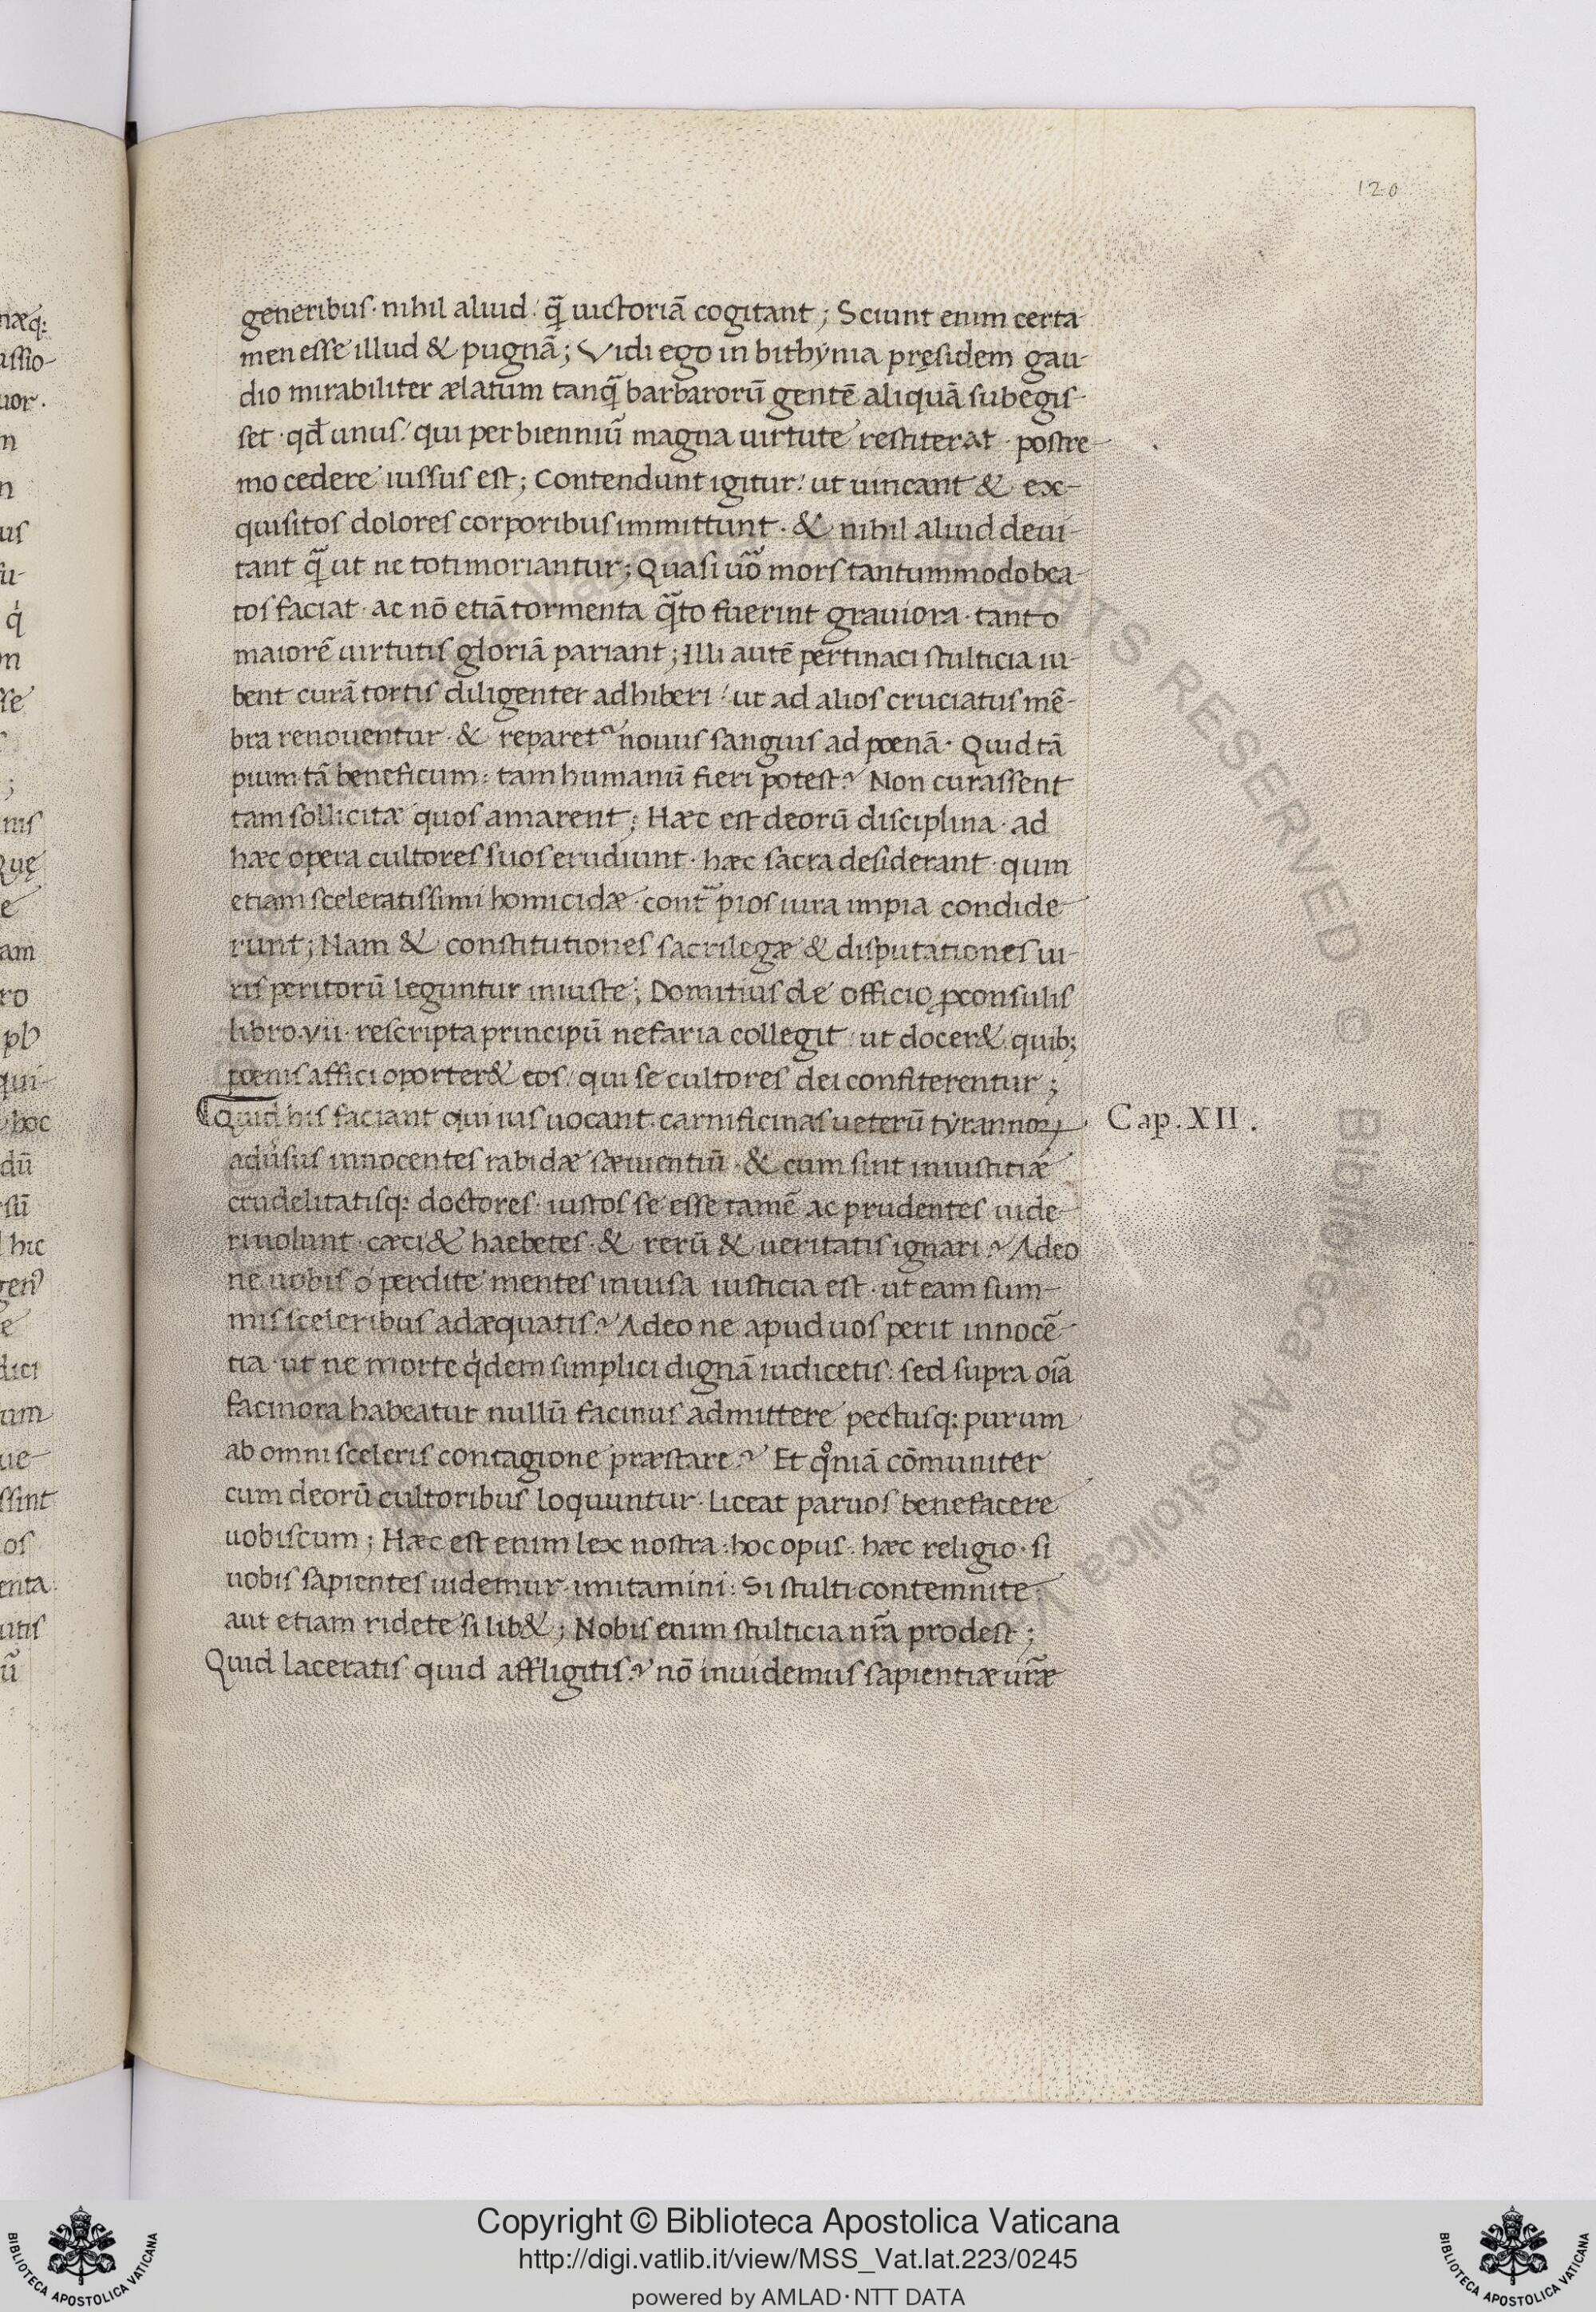 120
generibus · nihil aliud · q̃ uictoriã cogitant ; Sciunt enim certa-
men esse illud & pugnã ; Vidi ego in bithynia pręsidem gau-
dio mirabiliter ælatum tanq̃ barbarorũ gentẽ aliquã subegis-
set · qđ unus · qui per bienniũ magna uirtute restiterat · postre-
mo cedere iussus est ; Contendunt igitur · ut uincant & ex-
quisitos dolores corporibus immittunt · & nihil aliud deui-
tant q̃ ut ne toti moriantur ; Quasi uõ mors tantummodo bea-
tos faciat · ac nõ etiã tormenta q̃to fuerint grauiora · tanto
maiorẽ uirtutis gloriã pariant ; Illi autẽ pertinaci stulticia iu-
bent curã tortis diligenter adhiberi · ut ad alios cruciatus mẽ-
bra renouentur · & reparet᷑ nouus sanguis ad pœnã · Quid tã
pium tã beneficum : tam humanũ fieri potest ? Non curassent
tam sollicitæ quos amarent ; Hæc est deorũ disciplina · ad
hæc opera cultores suos erudiunt · hæc sacra desiderant · quin
etiam sceleratissimi homicidæ · cont̃ pios iura impia condide-
runt ; Nam & constitutiones sacrilegæ & disputationes iu-
ris peritorũ leguntur iniuste ; Domitius de officio ꝓconsulis
libro · vii · rescripta principũ nefaria collegit · ut docer& · quib;
pœnis affici oporter& eos · qui se cultores dei confiterentur ;
Quid his faciant qui ius uocant · carnificinas ueterũ tyrannoꝝ
Cap. XII .
adũsus innocentes rabidæ sæuientiũ · & cum sint iniustitiæ
crudelitatisq: doctores · iustos se esse tamẽ ac prudentes uide-
ri uolunt · cæci & haebetes · & rerũ & ueritatis ignari ? Adeo
ne uobis o perdite mentes inuisa iusticia est · ut eam sum-
mis sceleribus adæquatis ? Adeo ne apud uos perit innocẽ-
tia · ut ne morte q̇dem simplici dignã iudicetis : sed supra oĩa
facinora habeatur nullũ facinus admittere pectusq: purum
ab omni sceleris contagione præstare ? Et qͦniã cõmuniter
cum deorũ cultoribus loquuntur · Liceat paruos benefacere
uobiscum ; Hæc est enim lex nostra : hoc opus · hæc religio · si
uobis sapientes uidemur · imitamini : Si stulti contemnite :
aut etiam ridete si lib& ; Nobis enim stulticia nr̃a prodest ;
Quid laceratis quid affligitis ? nõ inuidemus sapientiæ ur̃æ
Copyright © Biblioteca Apostolica Vaticana
http://digi.vatlib.it/view/MSS_Vat.lat.223/0245
powered by AMLAD·NTT DATA
BIBLIOTECA APOSTOLICA VATICANA
BIBLIOTECA APOSTOLICA VATICANA